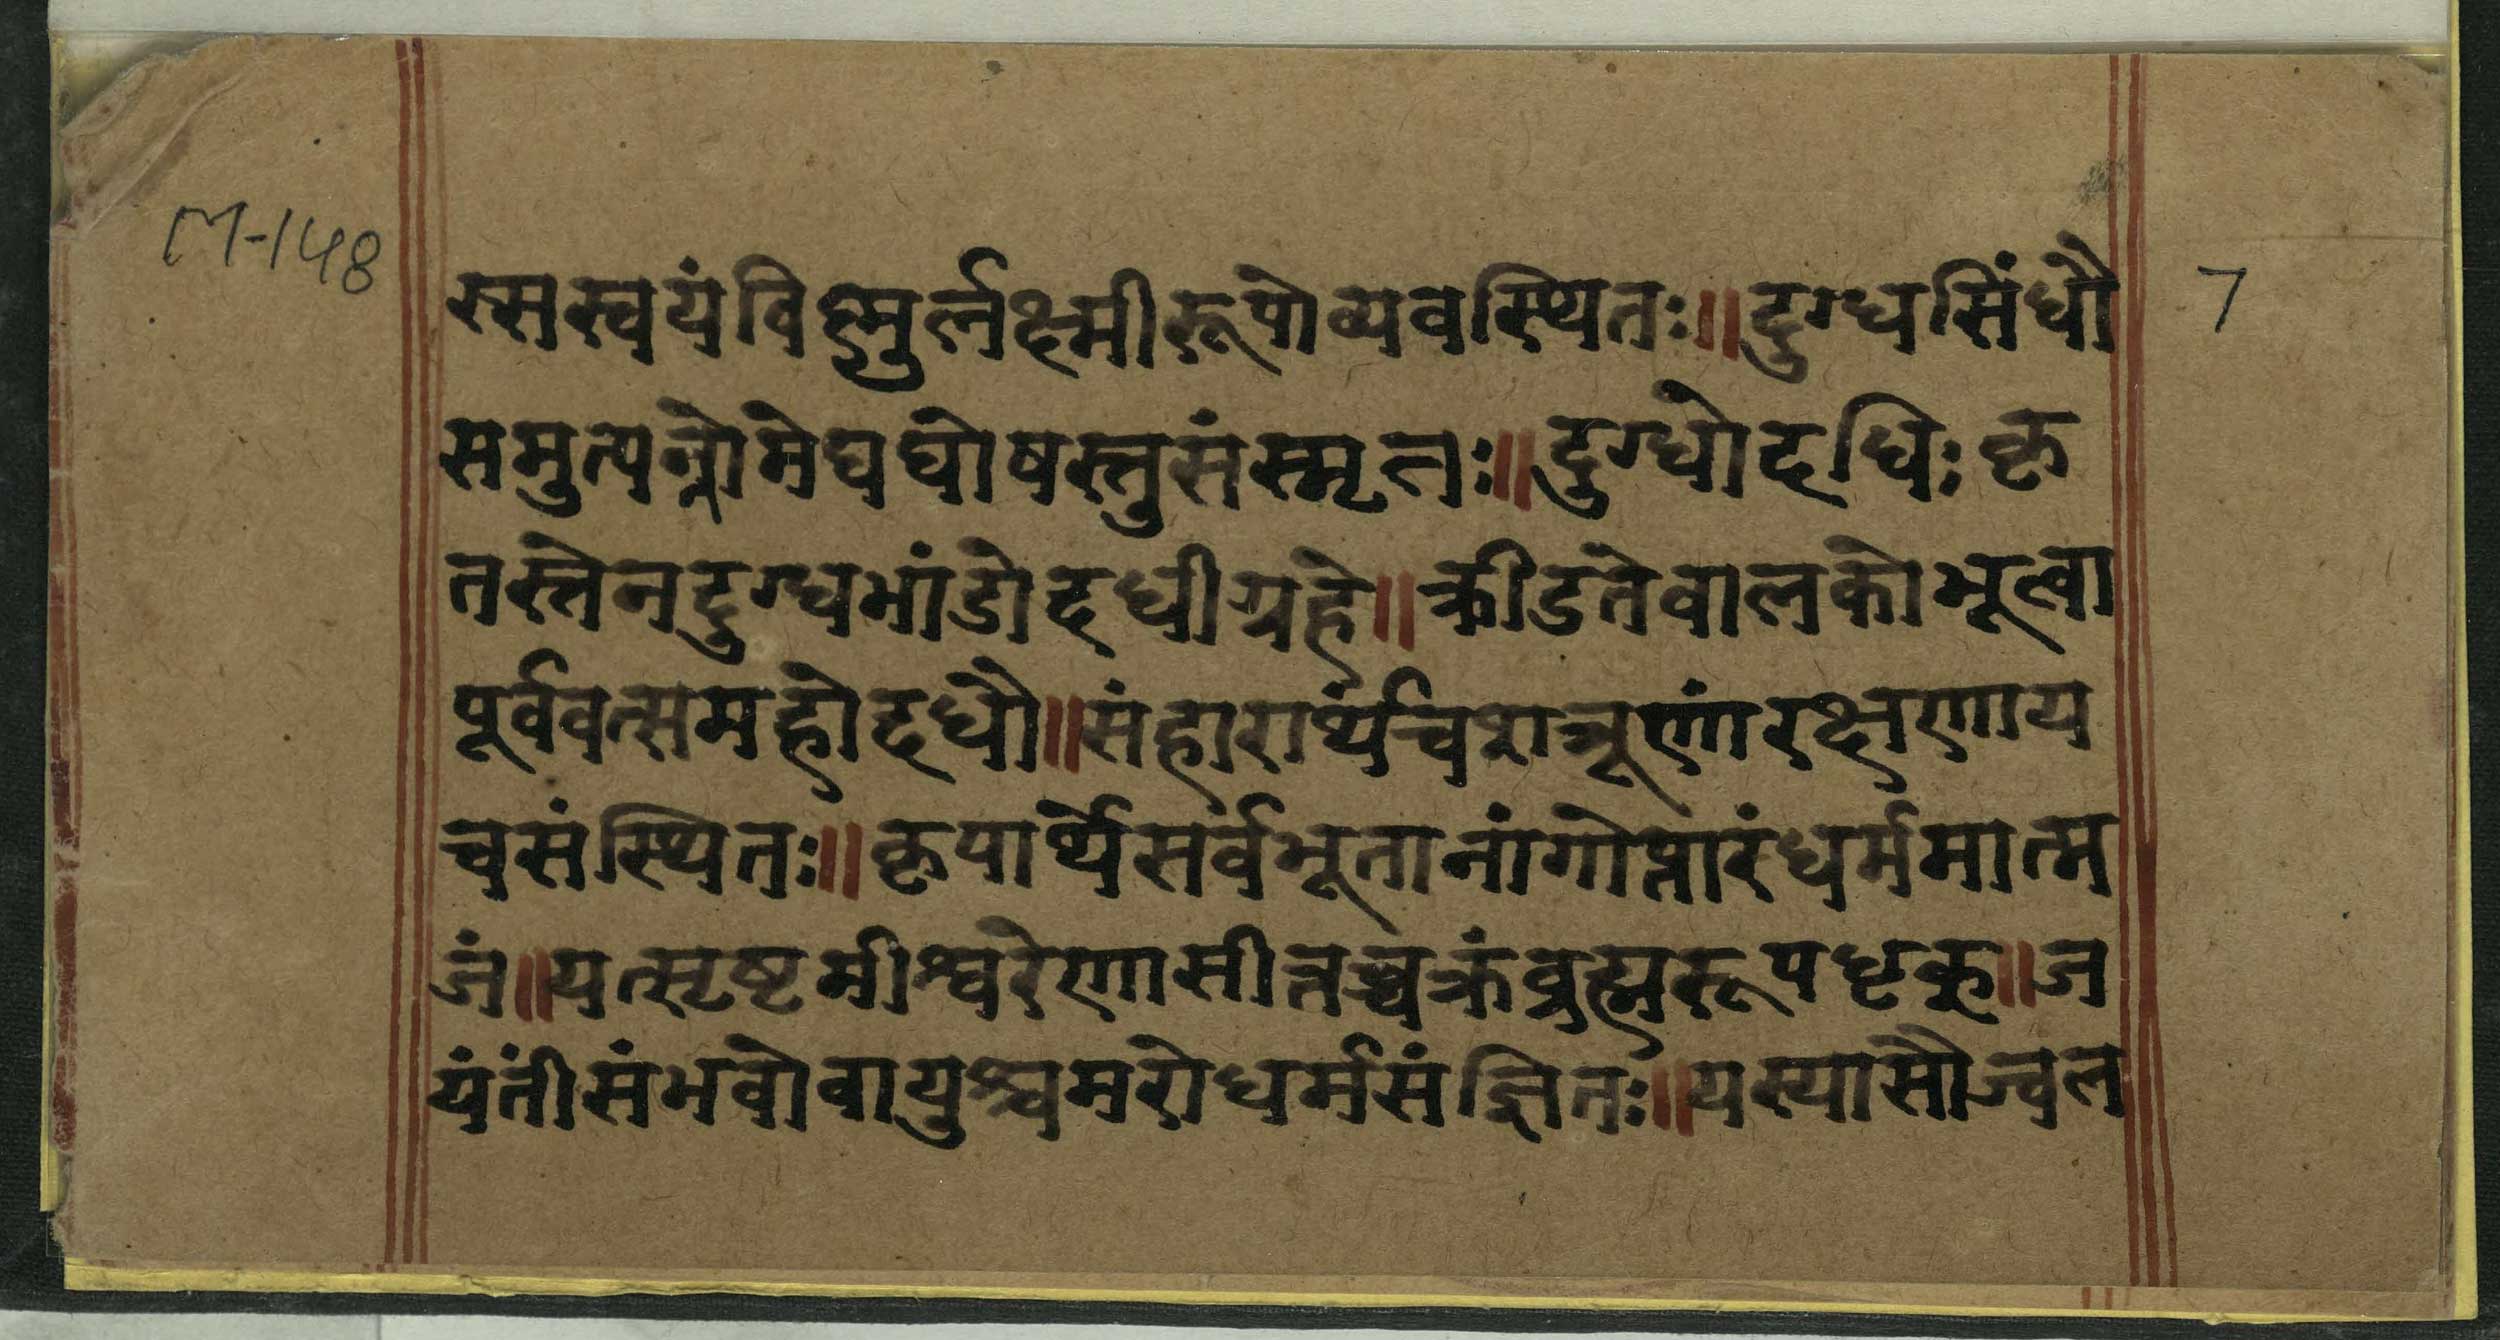 M-148
रूसस्वयंविष्णुर्लक्ष्मीरूपोव्यवस्थितः॥दुग्धसिंधौ
7
समुत्पन्नोमेघघोषस्तुसंस्मृतः॥दुग्धोदधिःकृ
तस्तेनदुग्धभांडोदधीग्रहे॥क्रीडतेवालकोभूत्वा
पूर्ववत्समहोदधौ॥संहारार्थंचशत्रूणांरक्षणाय
चसंस्थितः॥कृपार्थेसर्वभूतानांगोप्तारंधर्ममात्म
जं॥यत्सृष्टमीश्वरेणासीत्तच्चक्रंव्रह्मरूपधृक्॥ज
यंतीसंभवोवायुश्चमरोधर्मसंज्ञितः॥यस्यासौज्वल